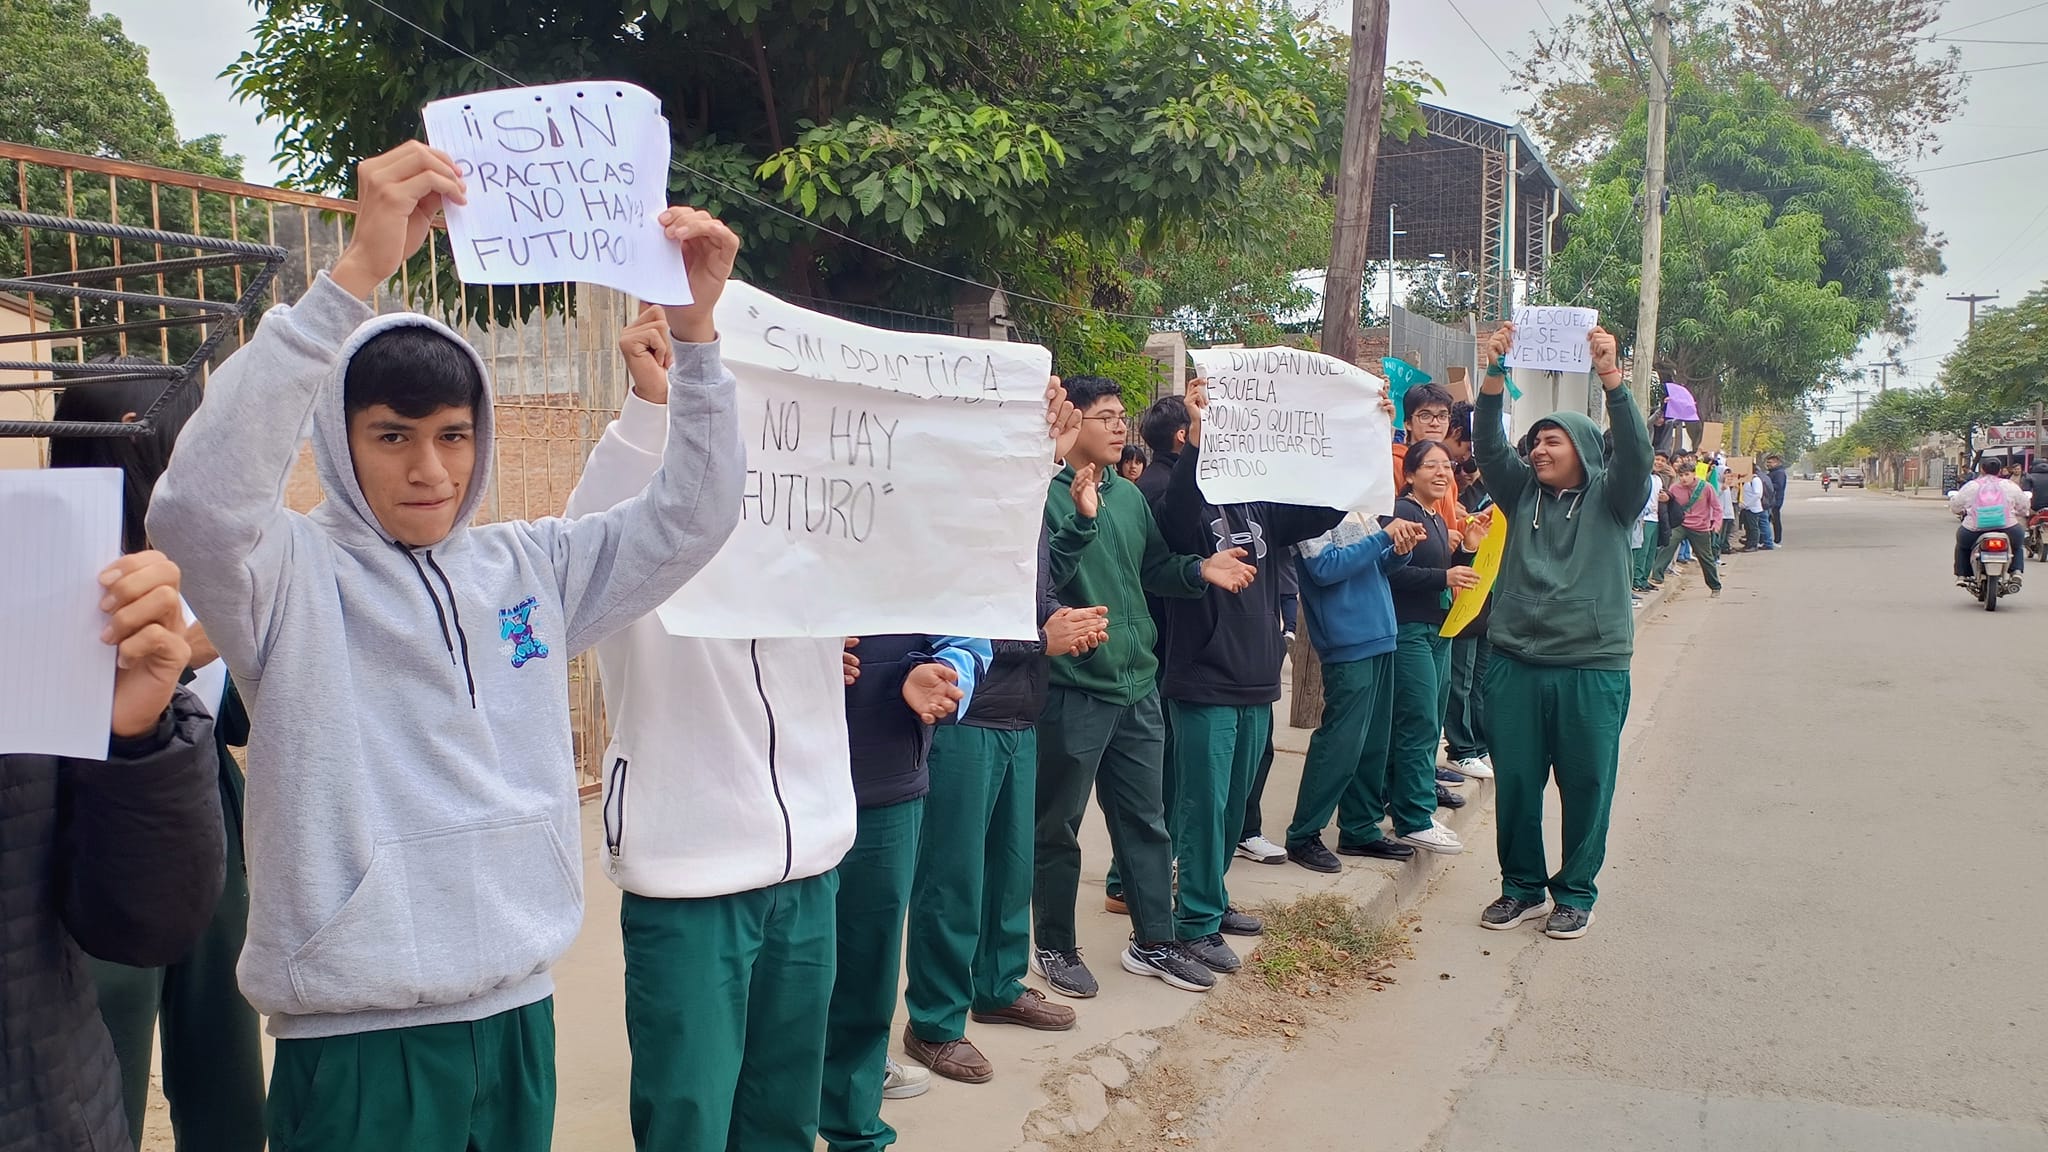 ¡¡SiN
PRACTICAS
NO HAY
FUTURO!!
"SIN PRACTICA
NO HAY
FUTURO"
NO DIVIDAN NUESTRA
ESCUELA
-NO NOS QUITEN
NUESTRO LUGAR DE
ESTUDIO
LA ESCUELA
NO SE
VENDE!!